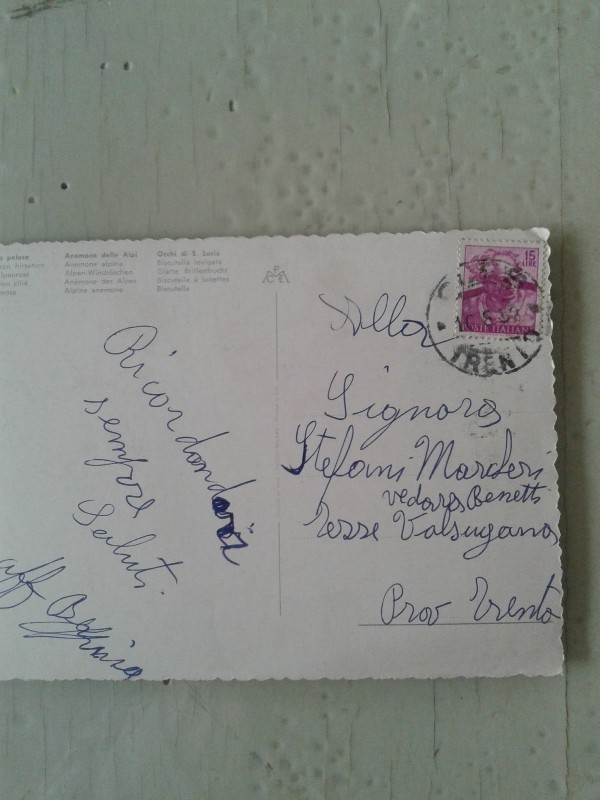 a pelosa
Anemone delle Alpi
Anemone alpina
Alpen-Windröschen
Anémone des Alpes
Alpine anemone
Occhi di S. Lucia
Biscutella levigata
Glatte Brillenbucht
Biscutelle à lunettes
Biscutella
15
LIRE
POSTE ITALIANE
TRENTO
Ricordandovi
sempre
Saluti.
aff
Alla
Signora
Stefani Marcheri
vedova Benetti
Tezze Valsugana
Prov Trento